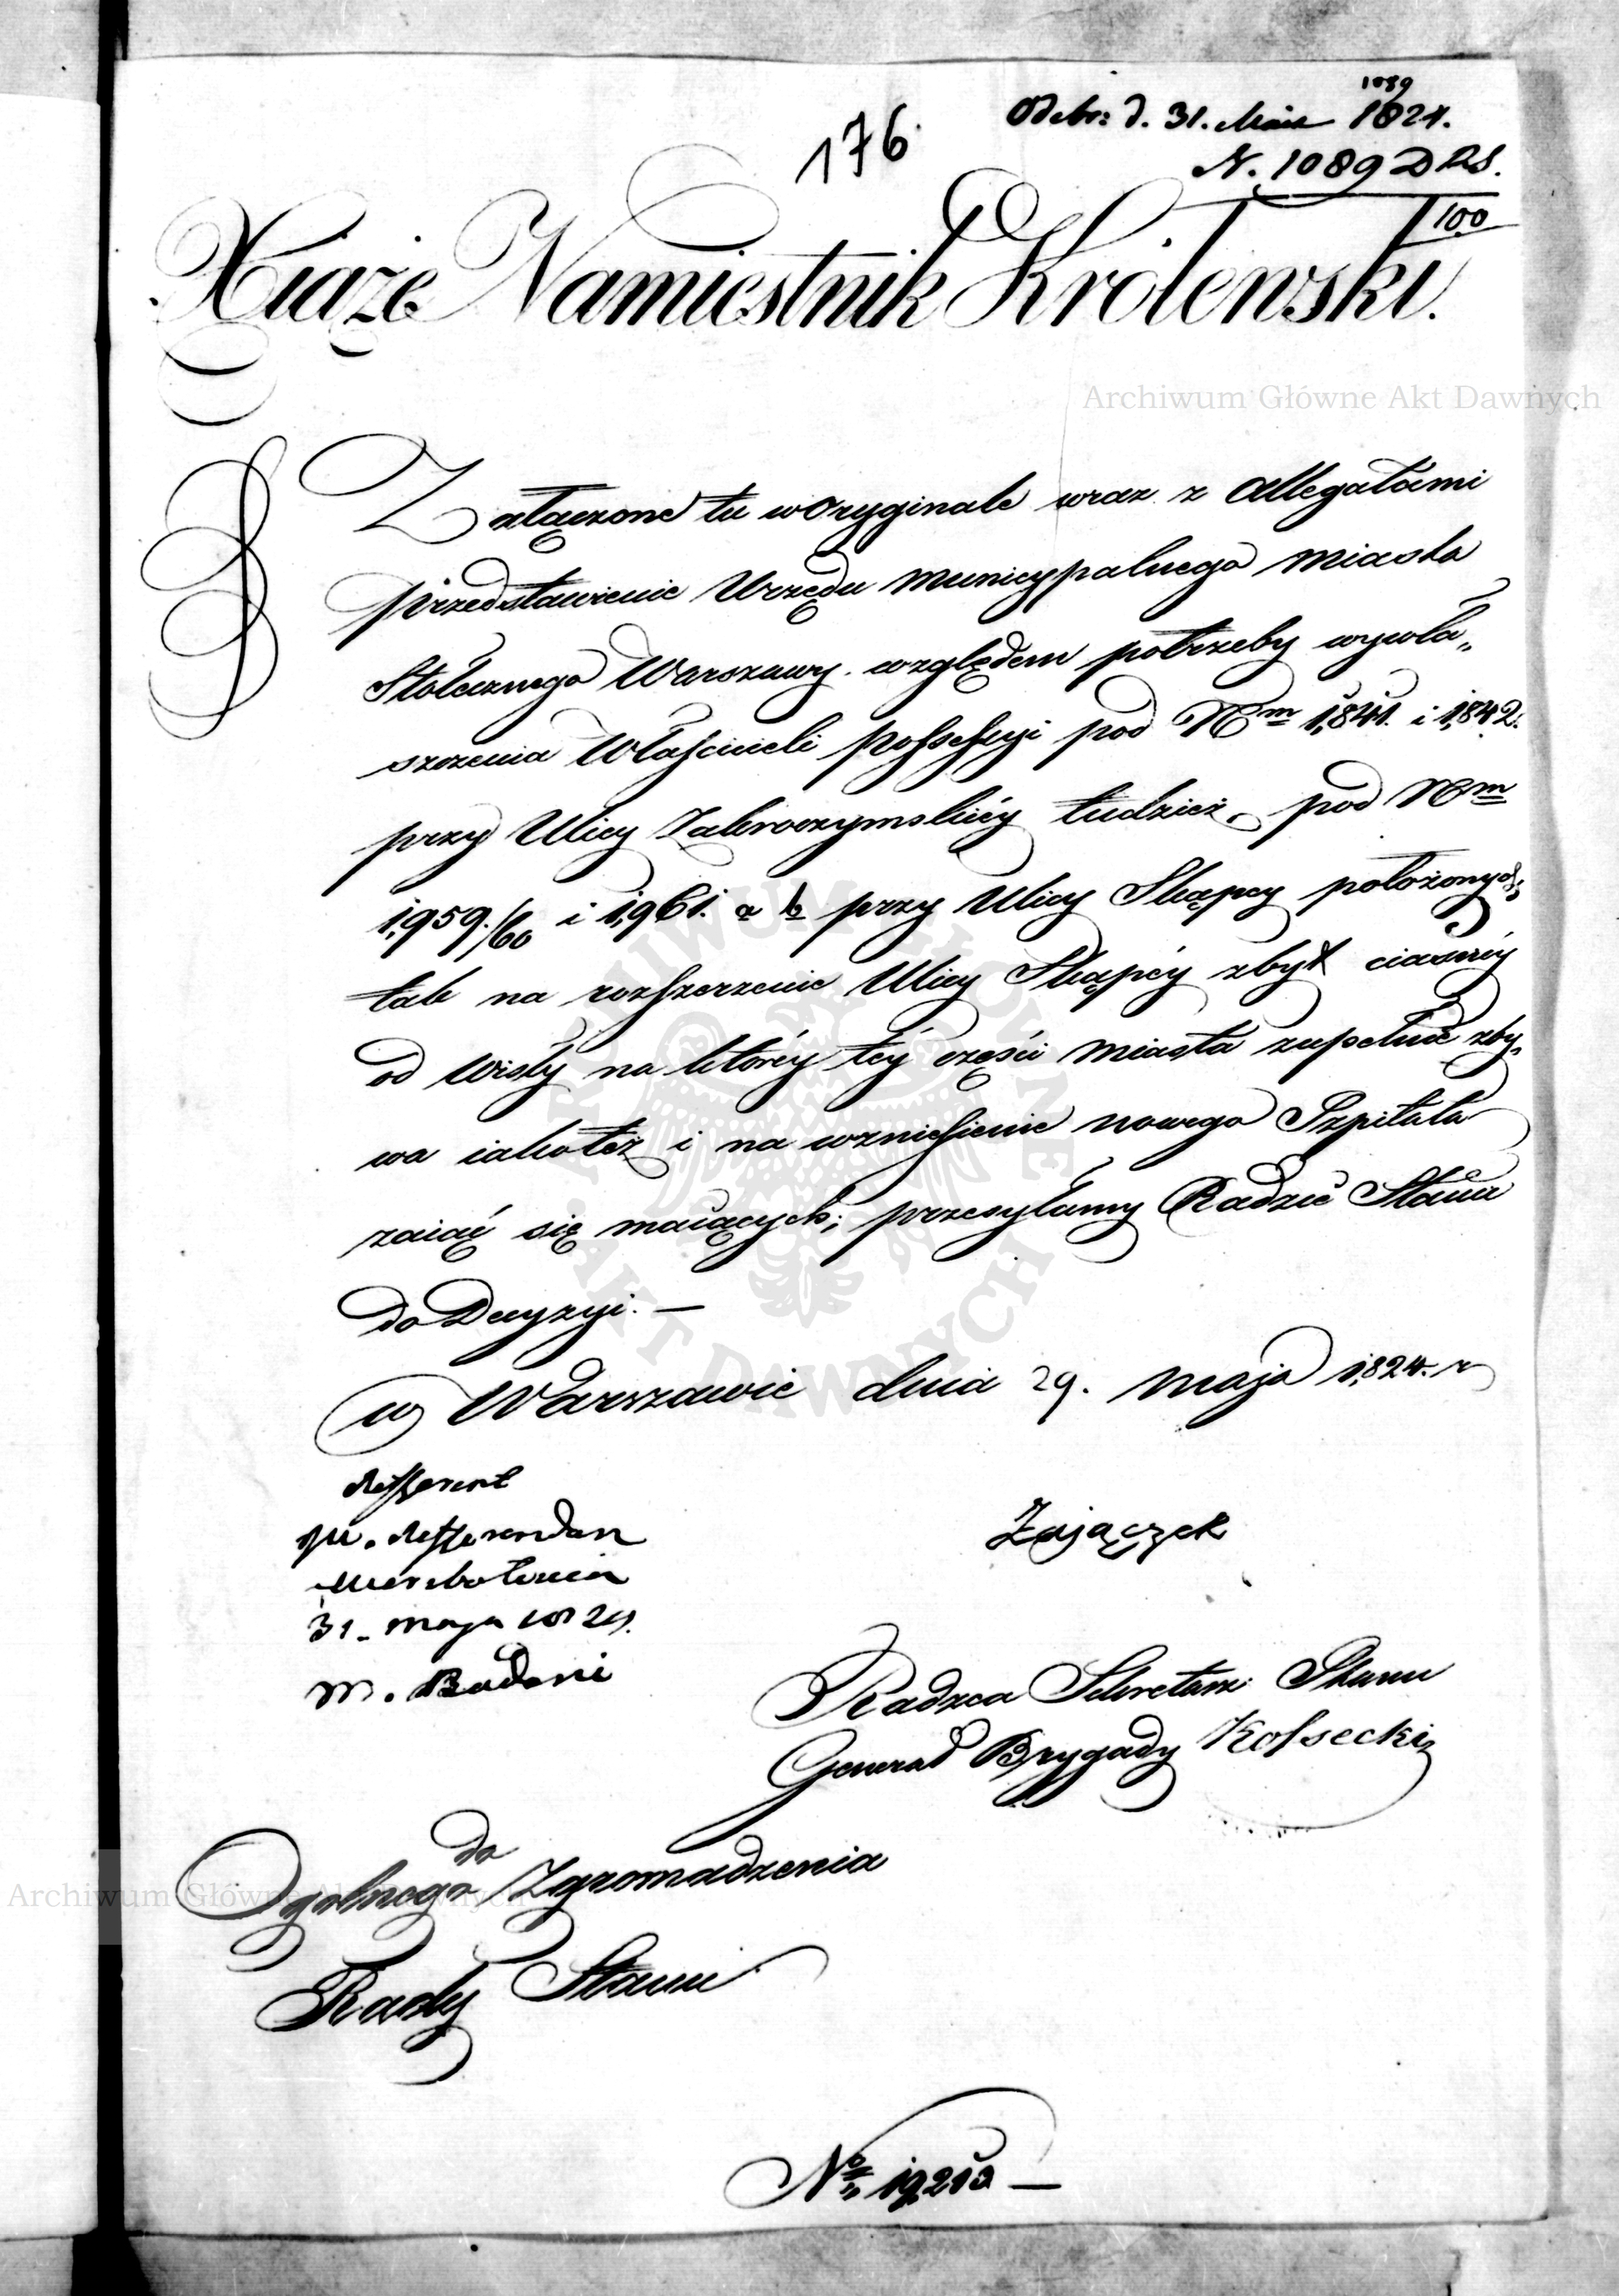 1089
Odebr: d. 31. Maia 1824.
176.
N. 1089 D RS.
100
Xiąże Namiestnik Królewski.
Archiwum Główne Akt Dawnych
Załączone tu w Oryginale wraz z Allegatami
przedstawienie Urzędu Municypalnego Miasta
Stołecznego Warszawy względem potrzeby wywła„
szczenia Właścicieli possessyi pod Nrm 1,841. i 1,842.
przy Ulicy Zakroczymskiéy tudzież, pod Nrm
1,959./60 i 1,961. a b przy Ulicy Skąpey położonych;
tak na rozszerzenie Ulicy Skąpéy zbyt ciasnéy
od Wisły na któréy téy części Miasta zupełnie zby„
wa iakoteż i na wzniesienie nowego Szpitala
zaiąć się maiących; przesyłamy Radzie Stanu
do Decyzyi. —
w Warszawie dnia 29. Maja 1,824. r
Refferent
Referendarz
31. Maja 1824.
M. Badeni
Zajączek
Radzca Sekretarz Stanu
Generał Brygady Kossecki
do
Ogolnego Zgromadzenia
Archiwum Główne Akt Dawnych
Rady Stanu
ARCHIWUM GŁÓWNE AKT DAWNYCH